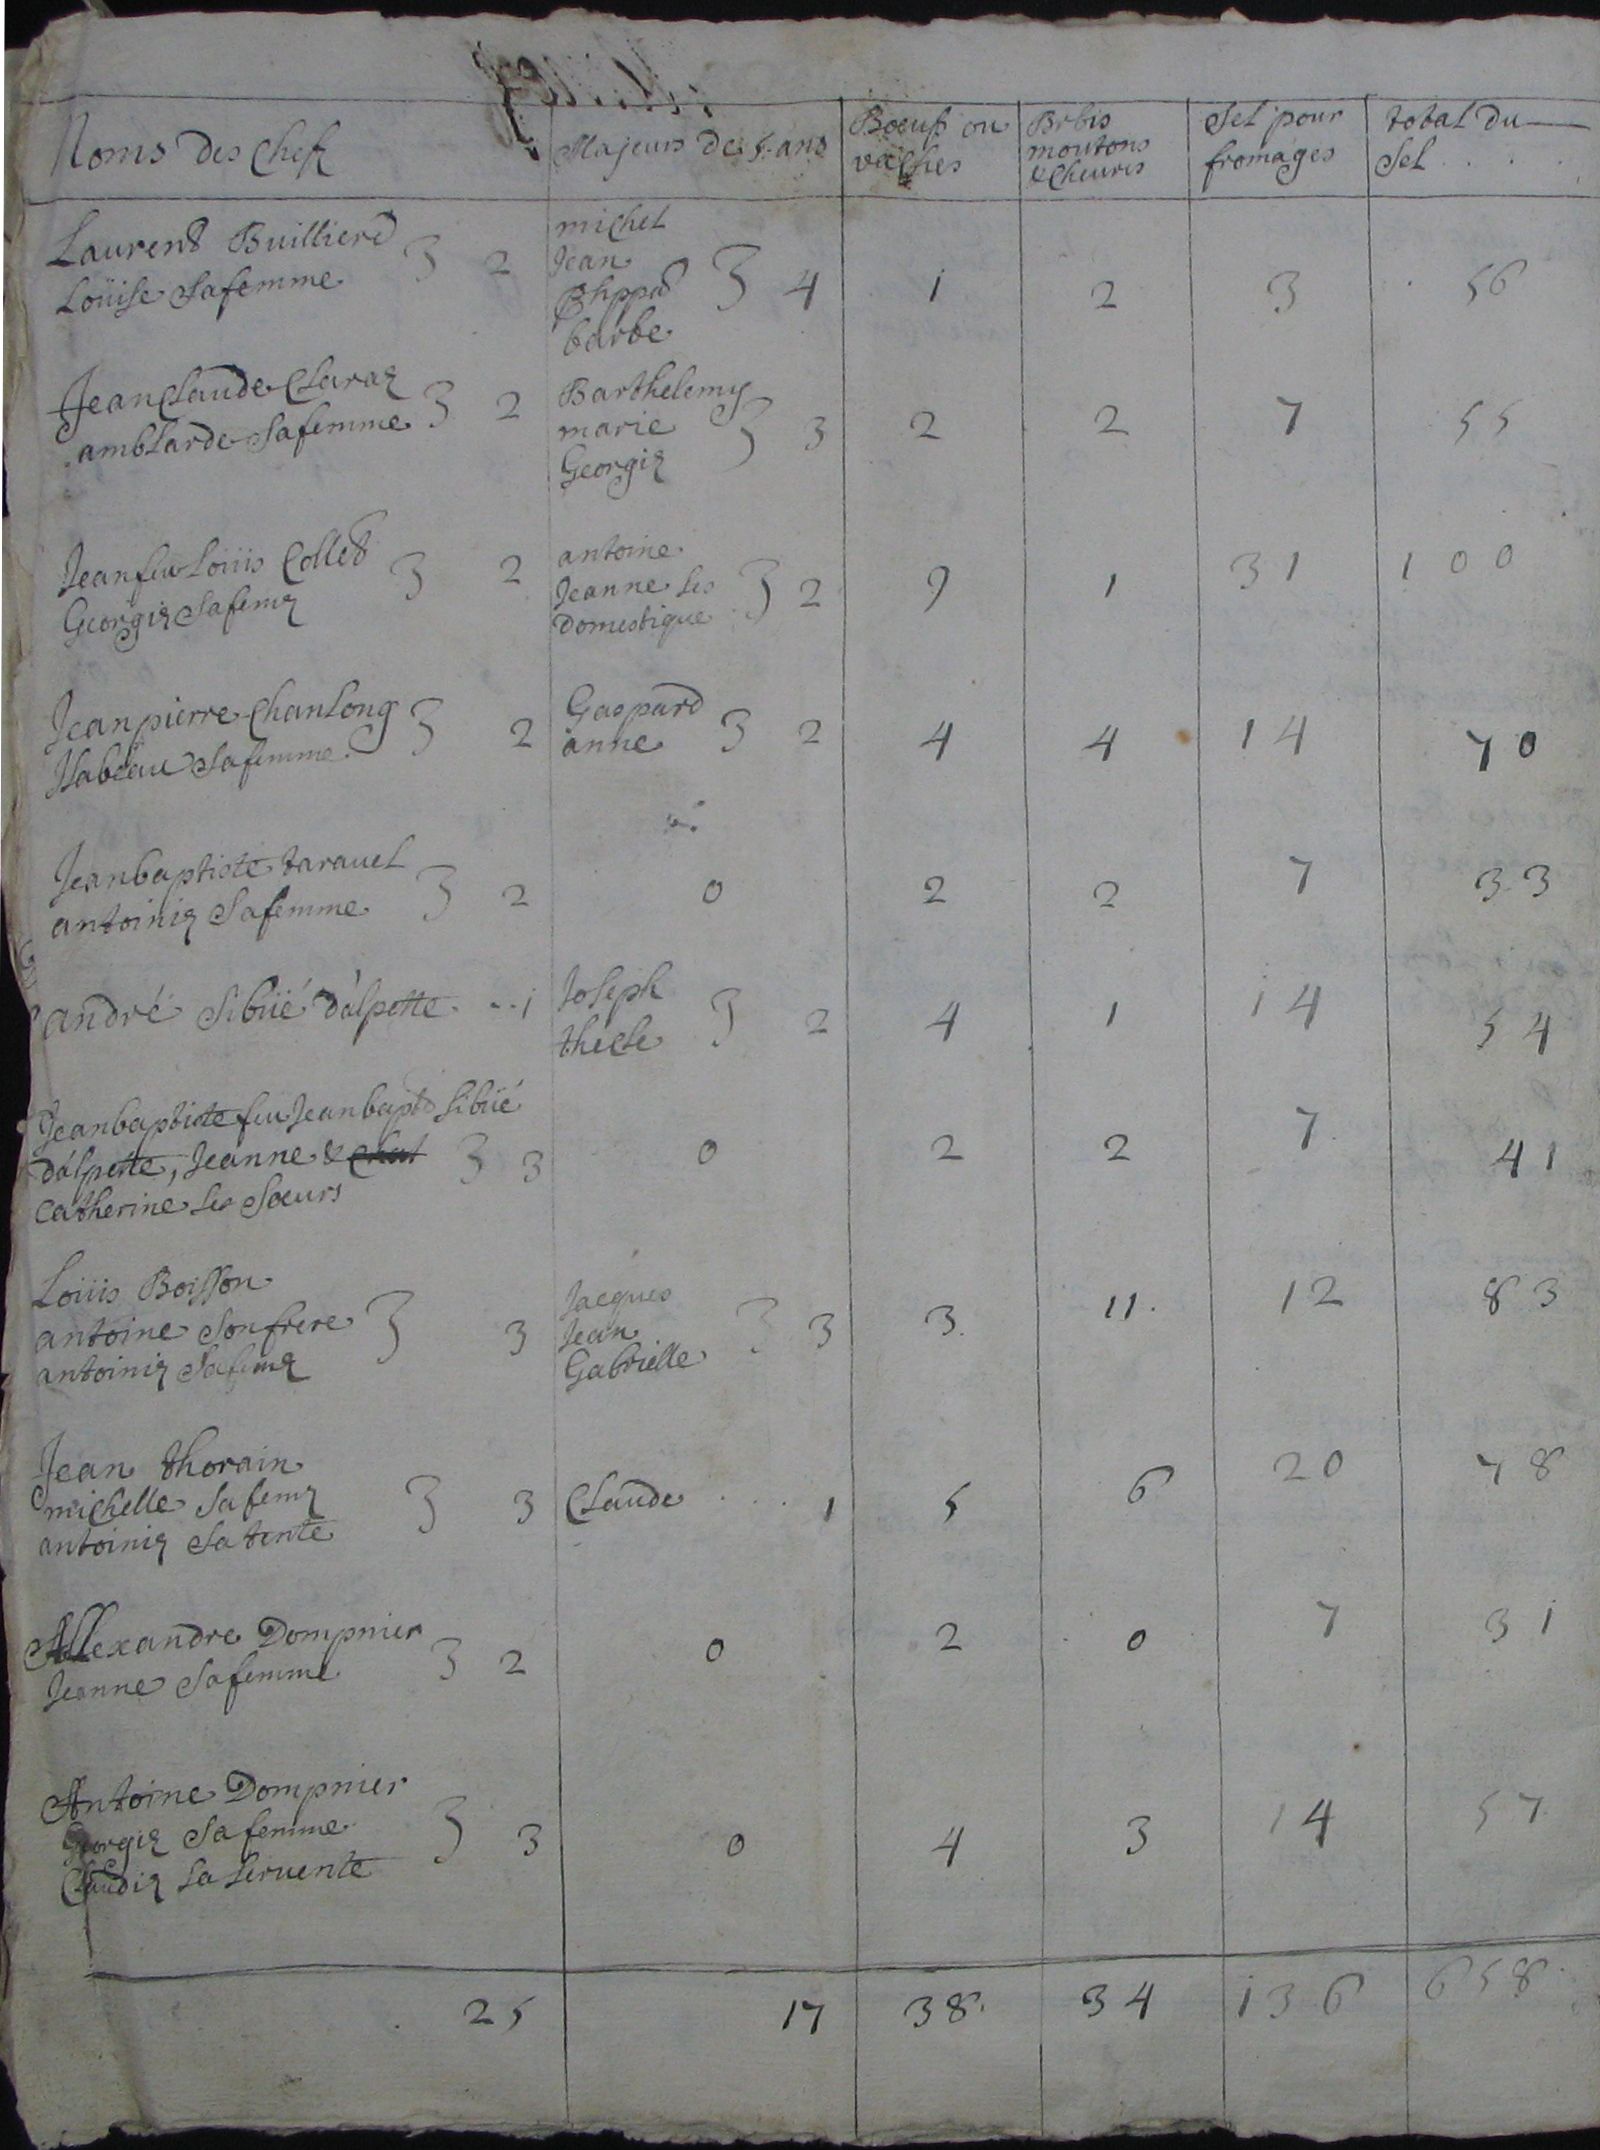 Noms des chefz | Majeurs de 5 ans | Boeufs ou vaches | Brbis moutons & cheures | Sel pour fromages | total du Sel . . .
Laurent Buillierd
Loüise Safemme } 2 | michel
Jean
Phppes
barbe } 4 | 1 | 2 | 3 | 56
Jean Claude Claraz
amblarde Safemme } 2 | Barthelemy
marie
Georgiz } 3 | 2 | 2 | 7 | 55
Jean feu Loüis Collet
Georgiz Safemz } 2 | antoine
Jeanne Ses
Domestique } 2 | 9 | 1 | 31 | 100
Jean pierre Chanlong
Isabeau Safemme } 2 | Gaspard
anne } 2 | 4 | 4 | 14 | 70
Jeanbaptiste taravel
antoiniz Safemme } 2 | 0 | 2 | 2 | 7 | 33
andré Sibüé dálpette . . 1 | Joseph
thécle } 2 | 4 | 1 | 14 | 54
Jeanbaptiste feu Jeanbapte Sibüé
dálpette, Jeanne &
Catherine Ses Soeurs } 3 | 0 | 2 | 2 | 7 | 41
Loüis Boisson
antoine Son frere
antoiniz Safemz } 3 | Jacques
Jean
Gabrielle } 3 | 3 | 11 | 12 | 83
Jean thorain
michelle Safemz
antoiniz Sa tente } 3 | Claude . . . 1 | 5 | 6 | 20 | 78
Allexandre Dompnier
Jeanne Safemme } 2 | 0 | 2 | 0 | 7 | 31
Antoine Dompnier
Georgiz Sa femme
Claudiz Sa Seruente } 3 | 0 | 4 | 3 | 14 | 57
25 | 17 | 38 | 34 | 136 | 658